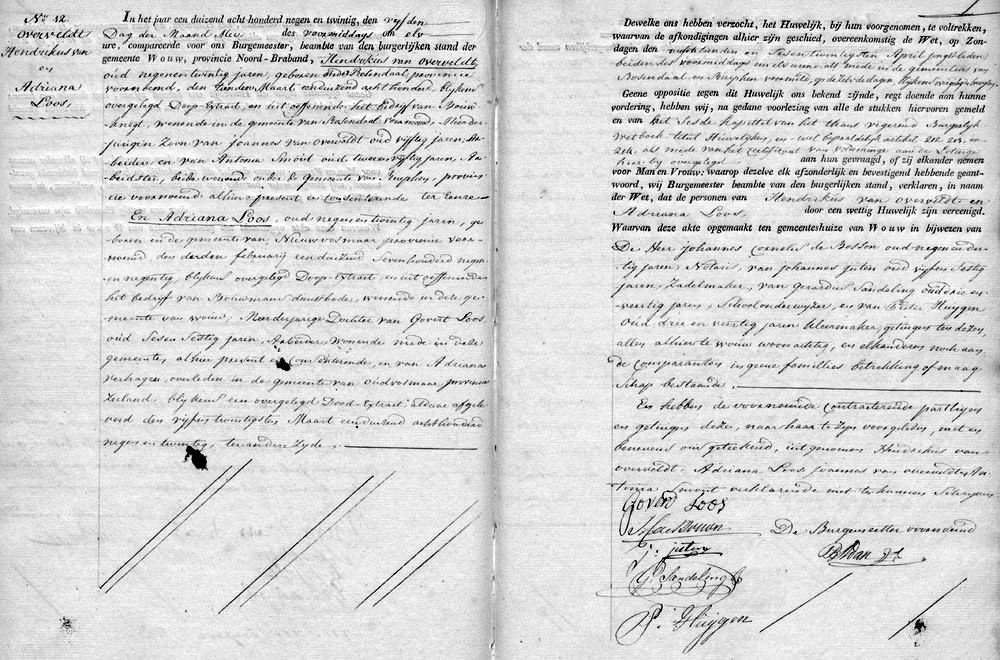 No. 12.
overveldt
Hendrikus van
en
Adriana
Loos,
In het jaar een duizend acht honderd negen en twintig, den vyfden
Dag der Maand Mei des voormiddags om elv
ure, compareerde voor ons Burgemeester, beambte van den burgerlijken stand der
gemeente Wouw, provincie Noord-Braband, Hendrikus van overveldt
oud negenentwintig jaren, geboren onder Rosendaal, provincie
voornoemd, den Maart eenduizend acht honderd, blykens
overgelegd Doop-Extract, en uit oeffenende het bedryf van Bouw
knegt, wonende in de gemeente van Rosendaal voornoemd, Meerder
jarigen Zoon van Joannes van overveldt oud vyftig jaren, Ar
beider en van Antonia Smoit oud tweeenvyftig jaren, Ar
beidster, beide wonende onder de gemeente van Rucphen, provin
cie voornoemd alhier present en consenteerende ter eenre
En Adriana Loos, oud negenentwintig jaren, ge
boren in de gemeente van Nieuwvosmaar provincie voor
noemd, den derden february eenduizend Sevenhonderd negen
en negentig, blykens overgelegd Doop-Extract, en uit oeffenende
het bedryf van Bouwmans dienstbode, wonende in deze ge
meente van wouw, Meerderjarige Dochter van Govert Loos
oud Sesen Sestig jaren, Arbeider wonende mede in deze
gemeente, alhier present en consenteerende, en van Adriana
verhagen, overleden in de gemeente van oudvosmaar, provincie
Zeeland blykens een overgelegd Dood-Extract aldaar afgele
verd den vyfentwintigsten Maart eenduizend achthonderd
negen en twintig, ter andere Zyde,
Dewelke ons hebben verzocht, het Huwelijk, bij hun voorgenomen, te voltrekken,
waarvan de afkondigingen alhier zijn geschied, overeenkomstig de Wet, op Zon-
dagen den negentienden en Sesentwintigsten April jongstleden
beiden des voormiddags om elf uren, als mede in de gemeentens van
Rosendaal en Rucphen voormeld, op dezelfde dagen, blykens
Geene oppositie tegen dit Huwelijk ons bekend zijnde, regt doende aan hunne
vordering, hebben wij, na gedane voorlezing van alle de stukken hiervoren gemeld
en van het Sesde kapittel van het thans vigerend Burgerlyk
wetboek titel Huwelyken, en wel bepaaldelyk artikel 212. 213. en
214. als mede van het certificaat van voldoening aan de
hun by overgelegd aan hun gevraagd, of zij elkander nemen
voor Man en Vrouw: waarop dezelve elk afzonderlijk en bevestigend hebbende geant-
woord, wij Burgemeester beambte van den burgerlijken stand, verklaren, in naam
der Wet, dat de personen van Hendrikus van overveldt en
Adriana Loos, door een wettig Huwelijk zijn vereenigd.
Waarvan deze akte opgemaakt ten gemeentehuize van Wouw in bijwezen van
De Heer Johannes Cornelis de Bosson oud negen ender
tig jaren, Notaris, van Johannes Juten oud vyfen Sestig
jaren, Zadelmaker, van Gerardus Sandeling oud drie en
veertig jaren, Schoolonderwyzer, en van Pieter Huygen
oud drie en veertig jaren kleermaker, getuigen ten dezen
alle alhier te wouw woonachtig, en elkanderen noch aan
de Comparanten in geene families betrekking of maag
Schap bestaande.
En hebben de voornoemde contracterende partyen
en getuigen dezes, naar haar te zyn voorgelezen, met en
benevens ons geteekend, uitgenomen Hendrikus van
overveldt, Adriana Loos, Joannes van overveldt en An
tonia Smoit verklarende niet te kunnen Schryven
Goverd Loos
J: juten
De Burgemeester voornoemd
G: Sandeling
P: Huijgen